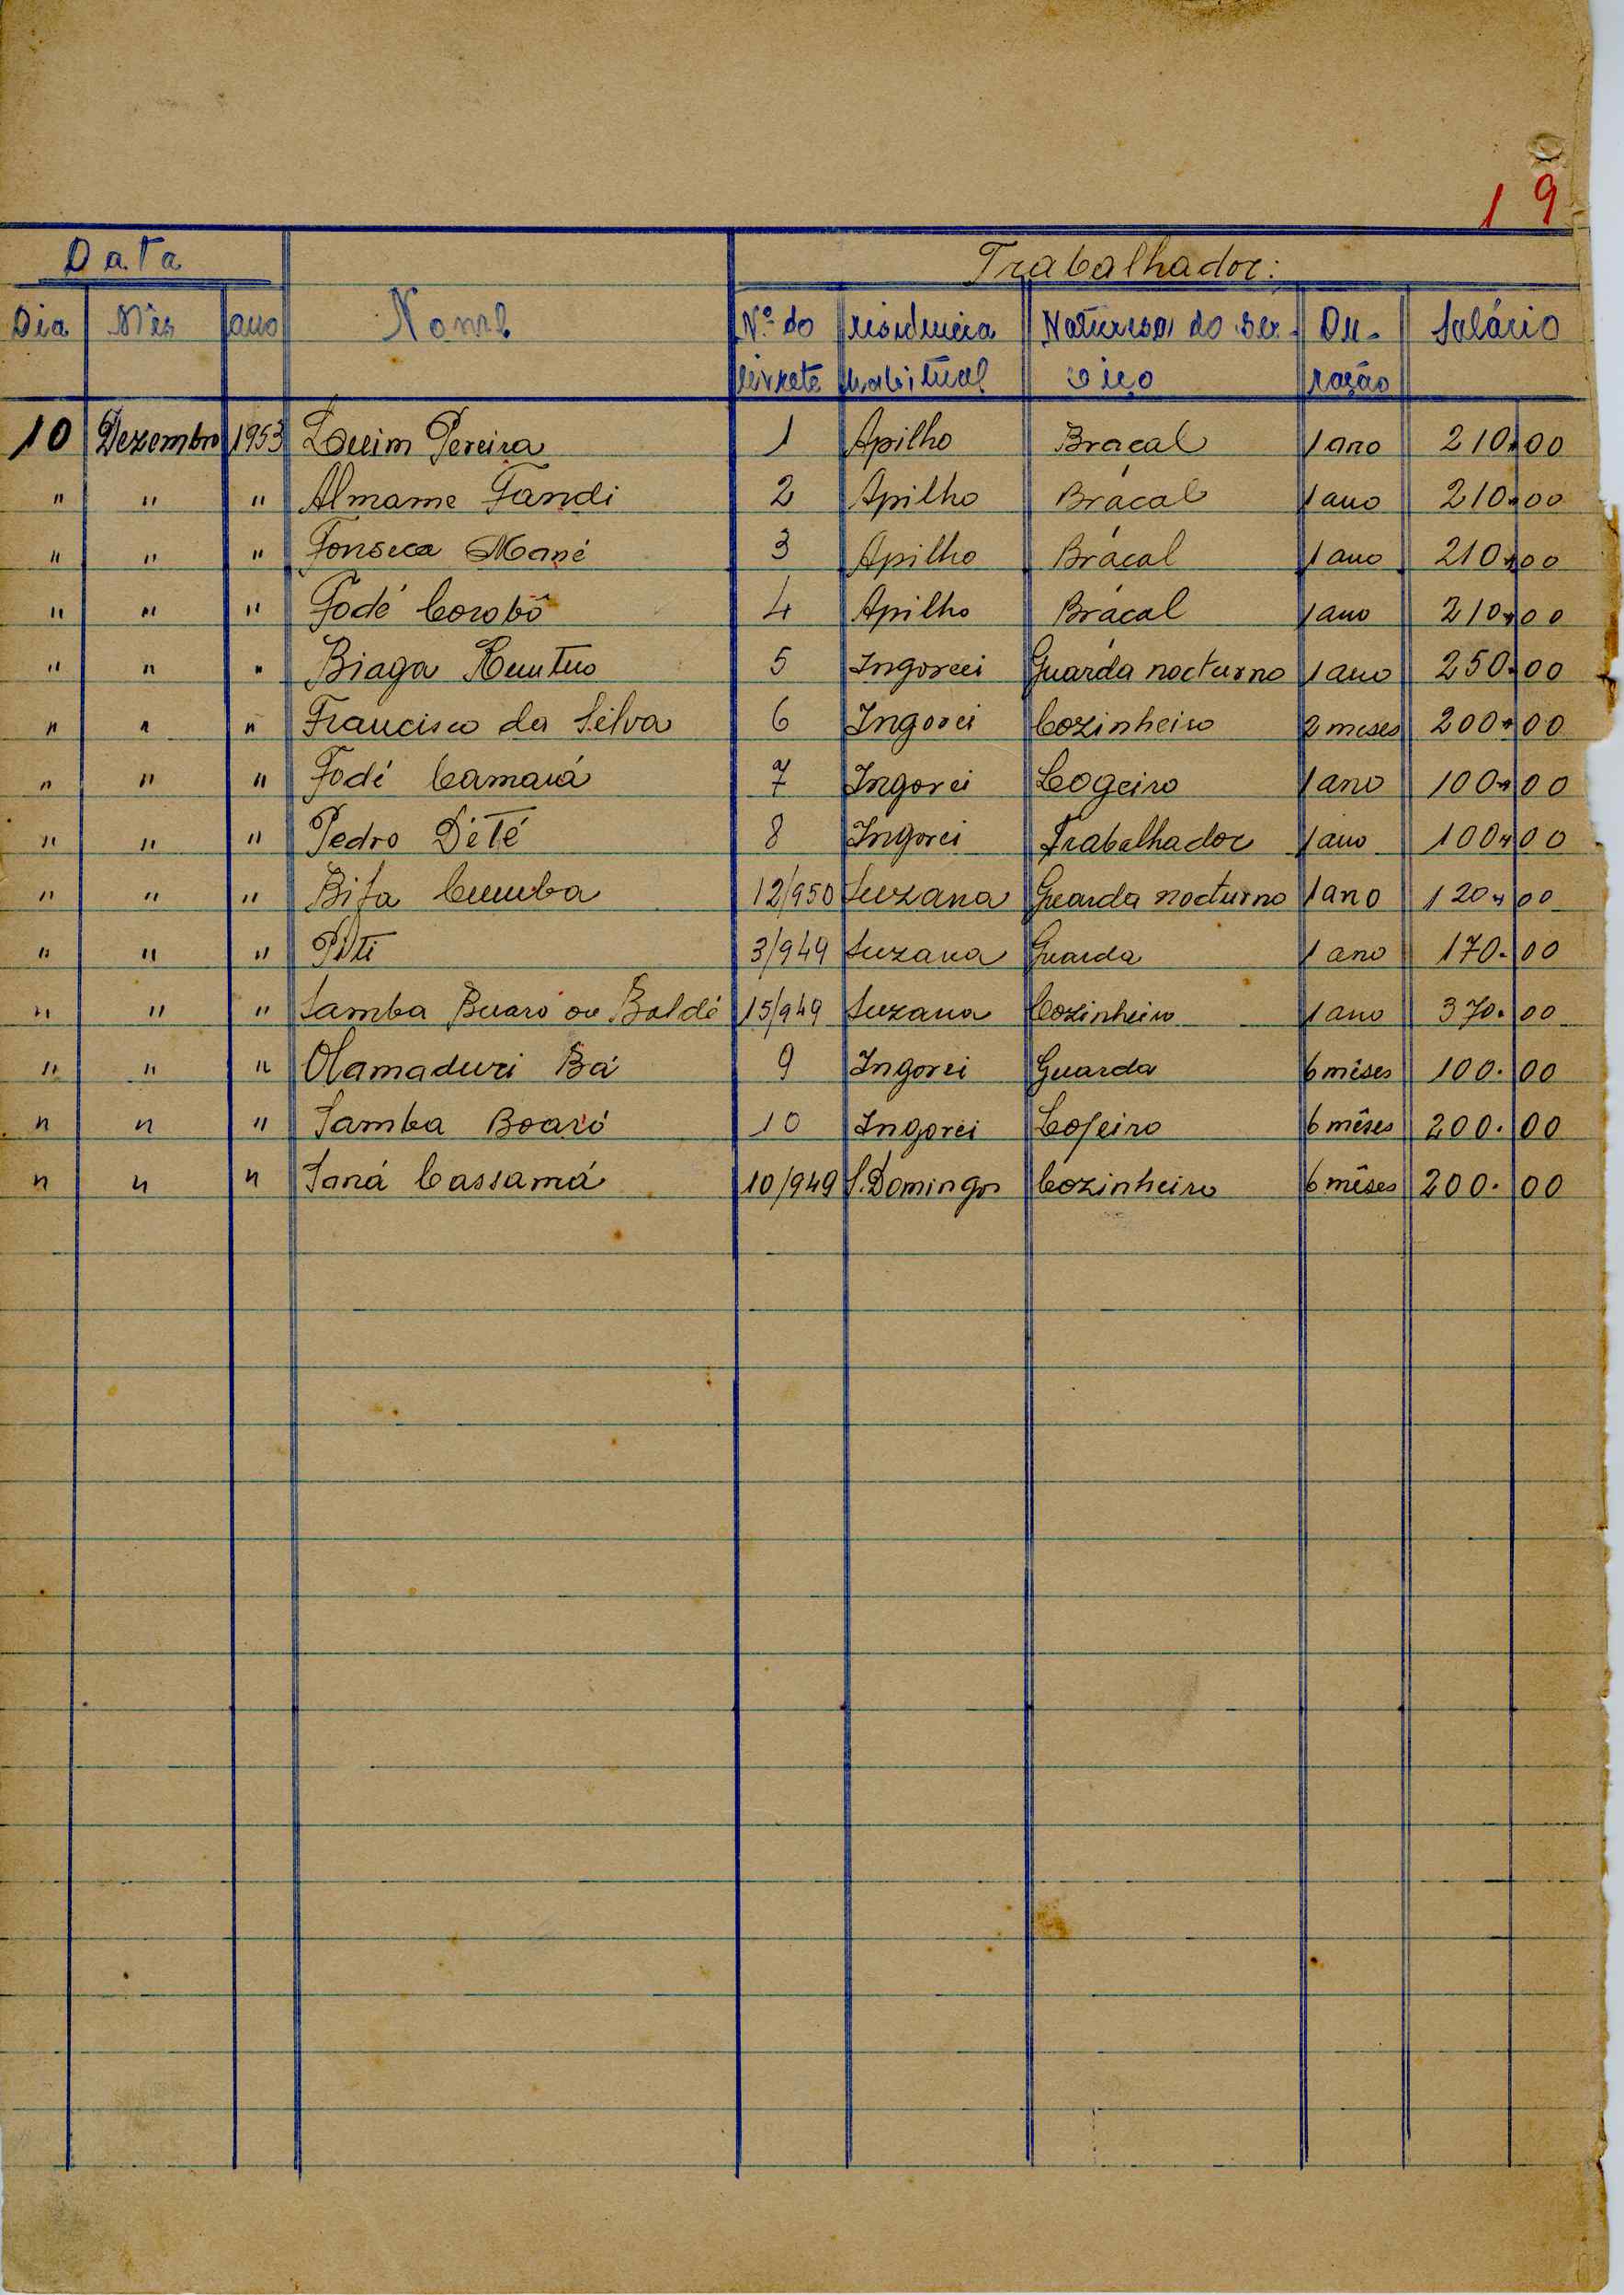 19
Data Trabalhador:
Dia Mês ano Nome Nº do residencia Naturesa do ser- Du- Salário
livrete habitual viço ração
10 Dezembro 1953 Luim Pereira 1 Apilho Braçal 1 ano 210.00
" " " Almame Fandi 2 Apilho Bráçal 1 ano 210.00
" " " Fonseca Mané 3 Apilho Bráçal 1 ano 210.00
" " " Fodé Corobô 4 Apilho Bráçal 1 ano 210.00
" " " Biaga 5 Ingorei Guarda nocturno 1 ano 250.00
" " " Francisco da Silva 6 Ingorei Cozinheiro 2 meses 200.00
" " " Fodé Camará 7 Ingorei Cogeiro 1 ano 100.00
" " " Pedro Dêté 8 Ingorei Trabalhador 1 ano 100.00
" " " Bifa Cumba 12/950 Suzana Guarda nocturno 1 ano 120.00
" " " Piti 3/949 Suzana Guarda 1 ano 170.00
" " " Samba Buaró ou Baldé 15/949 Suzana Cozinheiro 1 ano 370.00
" " " Mamaduri Bá 9 Ingorei Guarda 6 mêses 100.00
" " " Samba Boaró 10 Ingorei Cojeiro 6 mêses 200.00
" " " Saná Cassamá 10/949 S. Domingos Cozinheiro 6 mêses 200.00